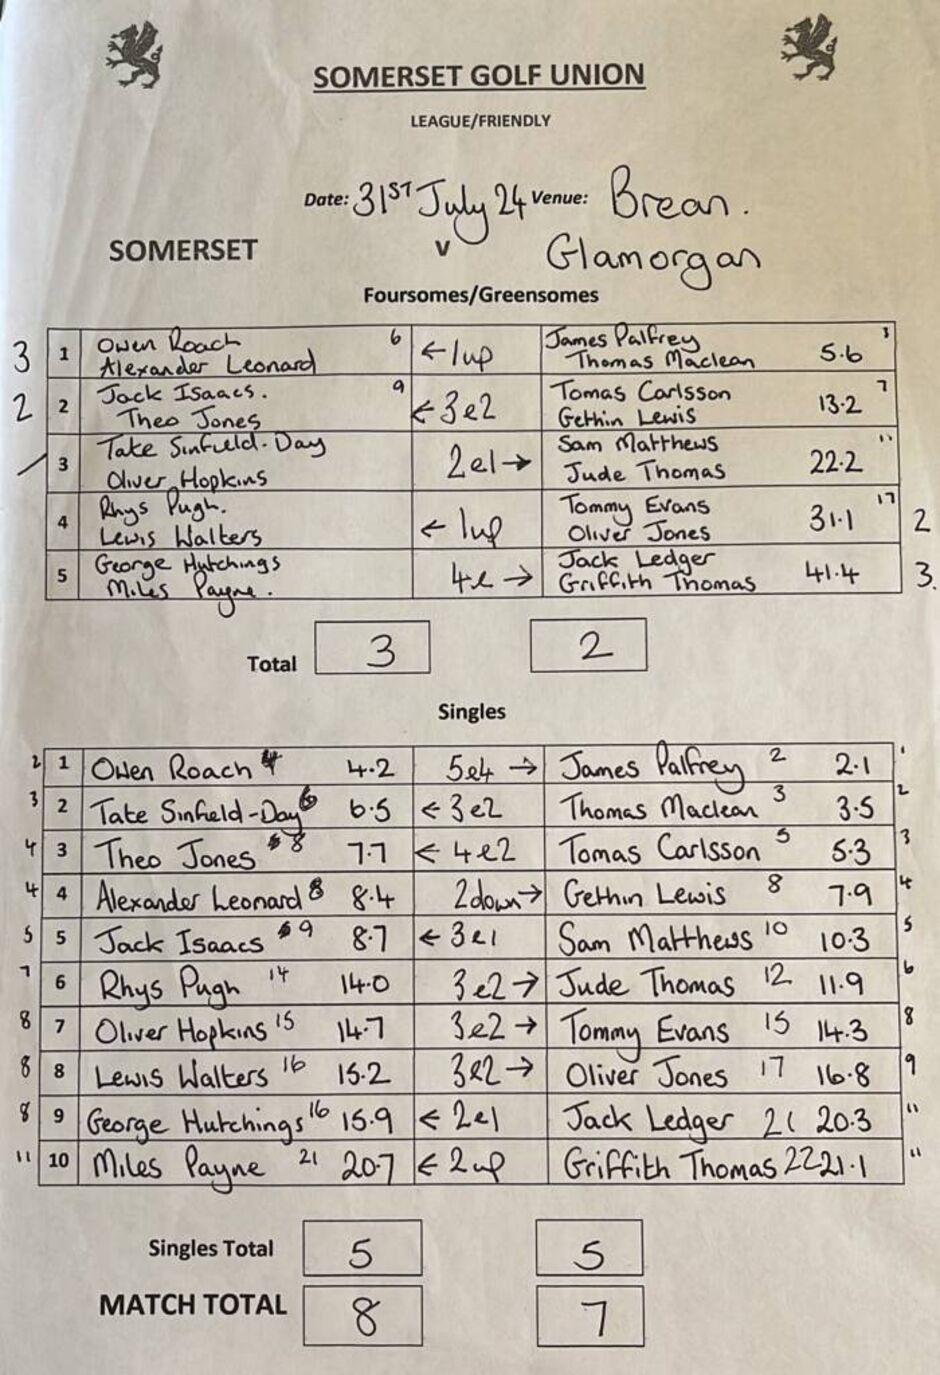 SOMERSET GOLF UNION
LEAGUE/FRIENDLY
Date: 31ST July 24 Venue: Brean.
SOMERSET v Glamorgan
Foursomes/Greensomes
3 1 Owen Roach 6 ←1up James Palfrey 3
Alexander Leonard Thomas Maclean 5.6
2 2 Jack Isaacs. 9 ←3e2 Tomas Carlsson 7
Theo Jones Gethin Lewis 13.2
3 Tate Sinfield-Day 2e1→ Sam Matthews 11
Oliver Hopkins Jude Thomas 22.2
4 Rhys Pugh. ←1up Tommy Evans 17
Lewis Walters Oliver Jones 31.1 2
5 George Hutchings 4e→ Jack Ledger
Miles Payne. Griffith Thomas 41.4 3.
Total 3 2
Singles
2 1 Owen Roach 4 4.2 5e4→ James Palfrey 2 2.1 1
3 2 Tate Sinfield-Day 6 6.5 ←3e2 Thomas Maclean 3 3.5 2
4 3 Theo Jones 8 7.7 ←4e2 Tomas Carlsson 5 5.3 3
4 4 Alexander Leonard 8 8.4 2down→ Gethin Lewis 8 7.9 4
5 5 Jack Isaacs 9 8.7 ←3e1 Sam Matthews 10 10.3 5
7 6 Rhys Pugh 14 14.0 3e2→ Jude Thomas 12 11.9 6
8 7 Oliver Hopkins 15 14.7 3e2→ Tommy Evans 15 14.3 8
8 8 Lewis Walters 16 15.2 3e2→ Oliver Jones 17 16.8 9
8 9 George Hutchings 16 15.9 ←2e1 Jack Ledger 21 20.3 11
11 10 Miles Payne 21 20.7 ←2up Griffith Thomas 22 21.1 11
Singles Total 5 5
MATCH TOTAL 8 7